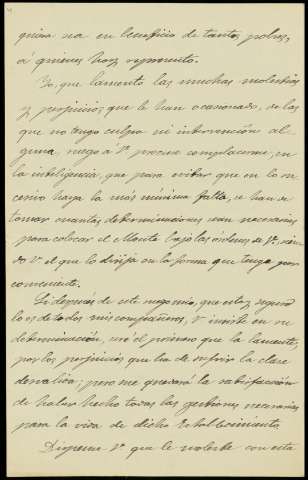 quiza va en beneficio de tantos pobres,
á quienes hoy represento.
Yo, que lamento las muchas molestias
y perjuicios que le han ocasionado, de las
que no tengo culpa ni intervención al
guna, ruego á Vº procure complacerme, en
la inteligencia, que para evitar que en lo su
cesivo haya la más mínima falta, se han de
tomar cuantas determinaciones sean necesarias
para colocar el Monte bajo las órdenes de Vº, sien
do Vº el que lo dirija en la forma que tenga por
conveniente.
Si después de este negocio, que estoy seguro
lo es de todos mis compañeros, Vº insiste en su
determinación, seré el primero que la lamente,
por los perjuicios que ha de sufrir la clase
desvalida; pero me quedará la satisfacción
de haber hecho todas las gestiones necesarias
para la vida de dicho establecimiento.
Dispense Vº que le moleste con esta